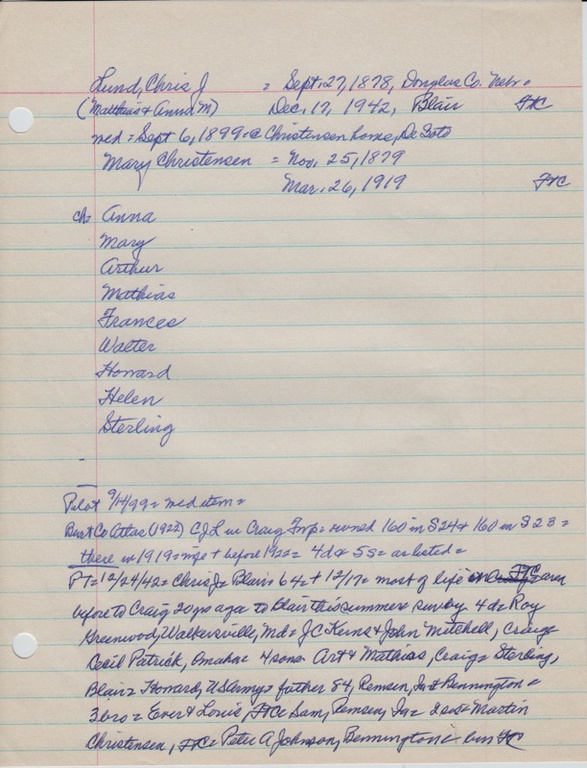 Lund, Chris J = Sept. 27, 1878, Douglas Co. Nebr =
(Matthias & Anna M) Dec. 17, 1942, Blair FtC
med = Sept 6, 1899 @ Christensen home, De Soto
Mary Christensen = Nov. 25, 1879
Mar. 26, 1919 FtC
ch = Anna
Mary
Arthur
Mathias
Frances
Walter
Howard
Helen
Sterling
Pilot 9/14/99 = med item =
Burt Co Atlas (1922) CJL in Craig Twp = owned 160 in S24 & 160 in S23 =
there in 1919 = wife + before 1922 = 4d & 5s = as listed =
PT = 12/24/42 = Chris J = Blair 64 = + 12/17 = most of life in FtC area
before to Craig 20 yrs ago to Blair this summer = surv by 4d = Roy
Greenwood, Walkersville, Md = J C Kerns & John Mitchell, Craig =
Cecil Patrick, Omaha = 4 sons = Art & Mathias, Craig = Sterling,
Blair = Howard, US Army = father 54, Remsen, Ia & Bennington =
3 bro = Ever & Louis, FtC = Sam, Remsen, Ia = 2 sis = Martin
Christensen, FtC = Peter A Johnson, Bennington = bur FtC